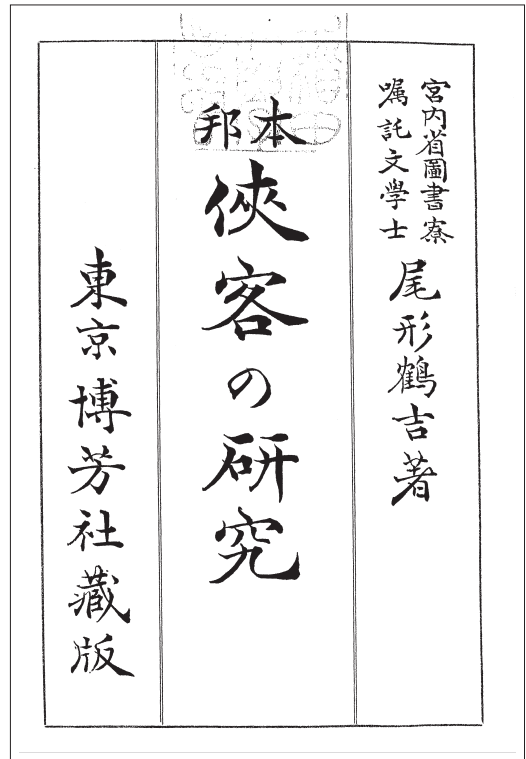 宮內省圖書寮
囑託文學士
尾形鶴吉著
本邦
俠客の硏究
東京博芳社藏版